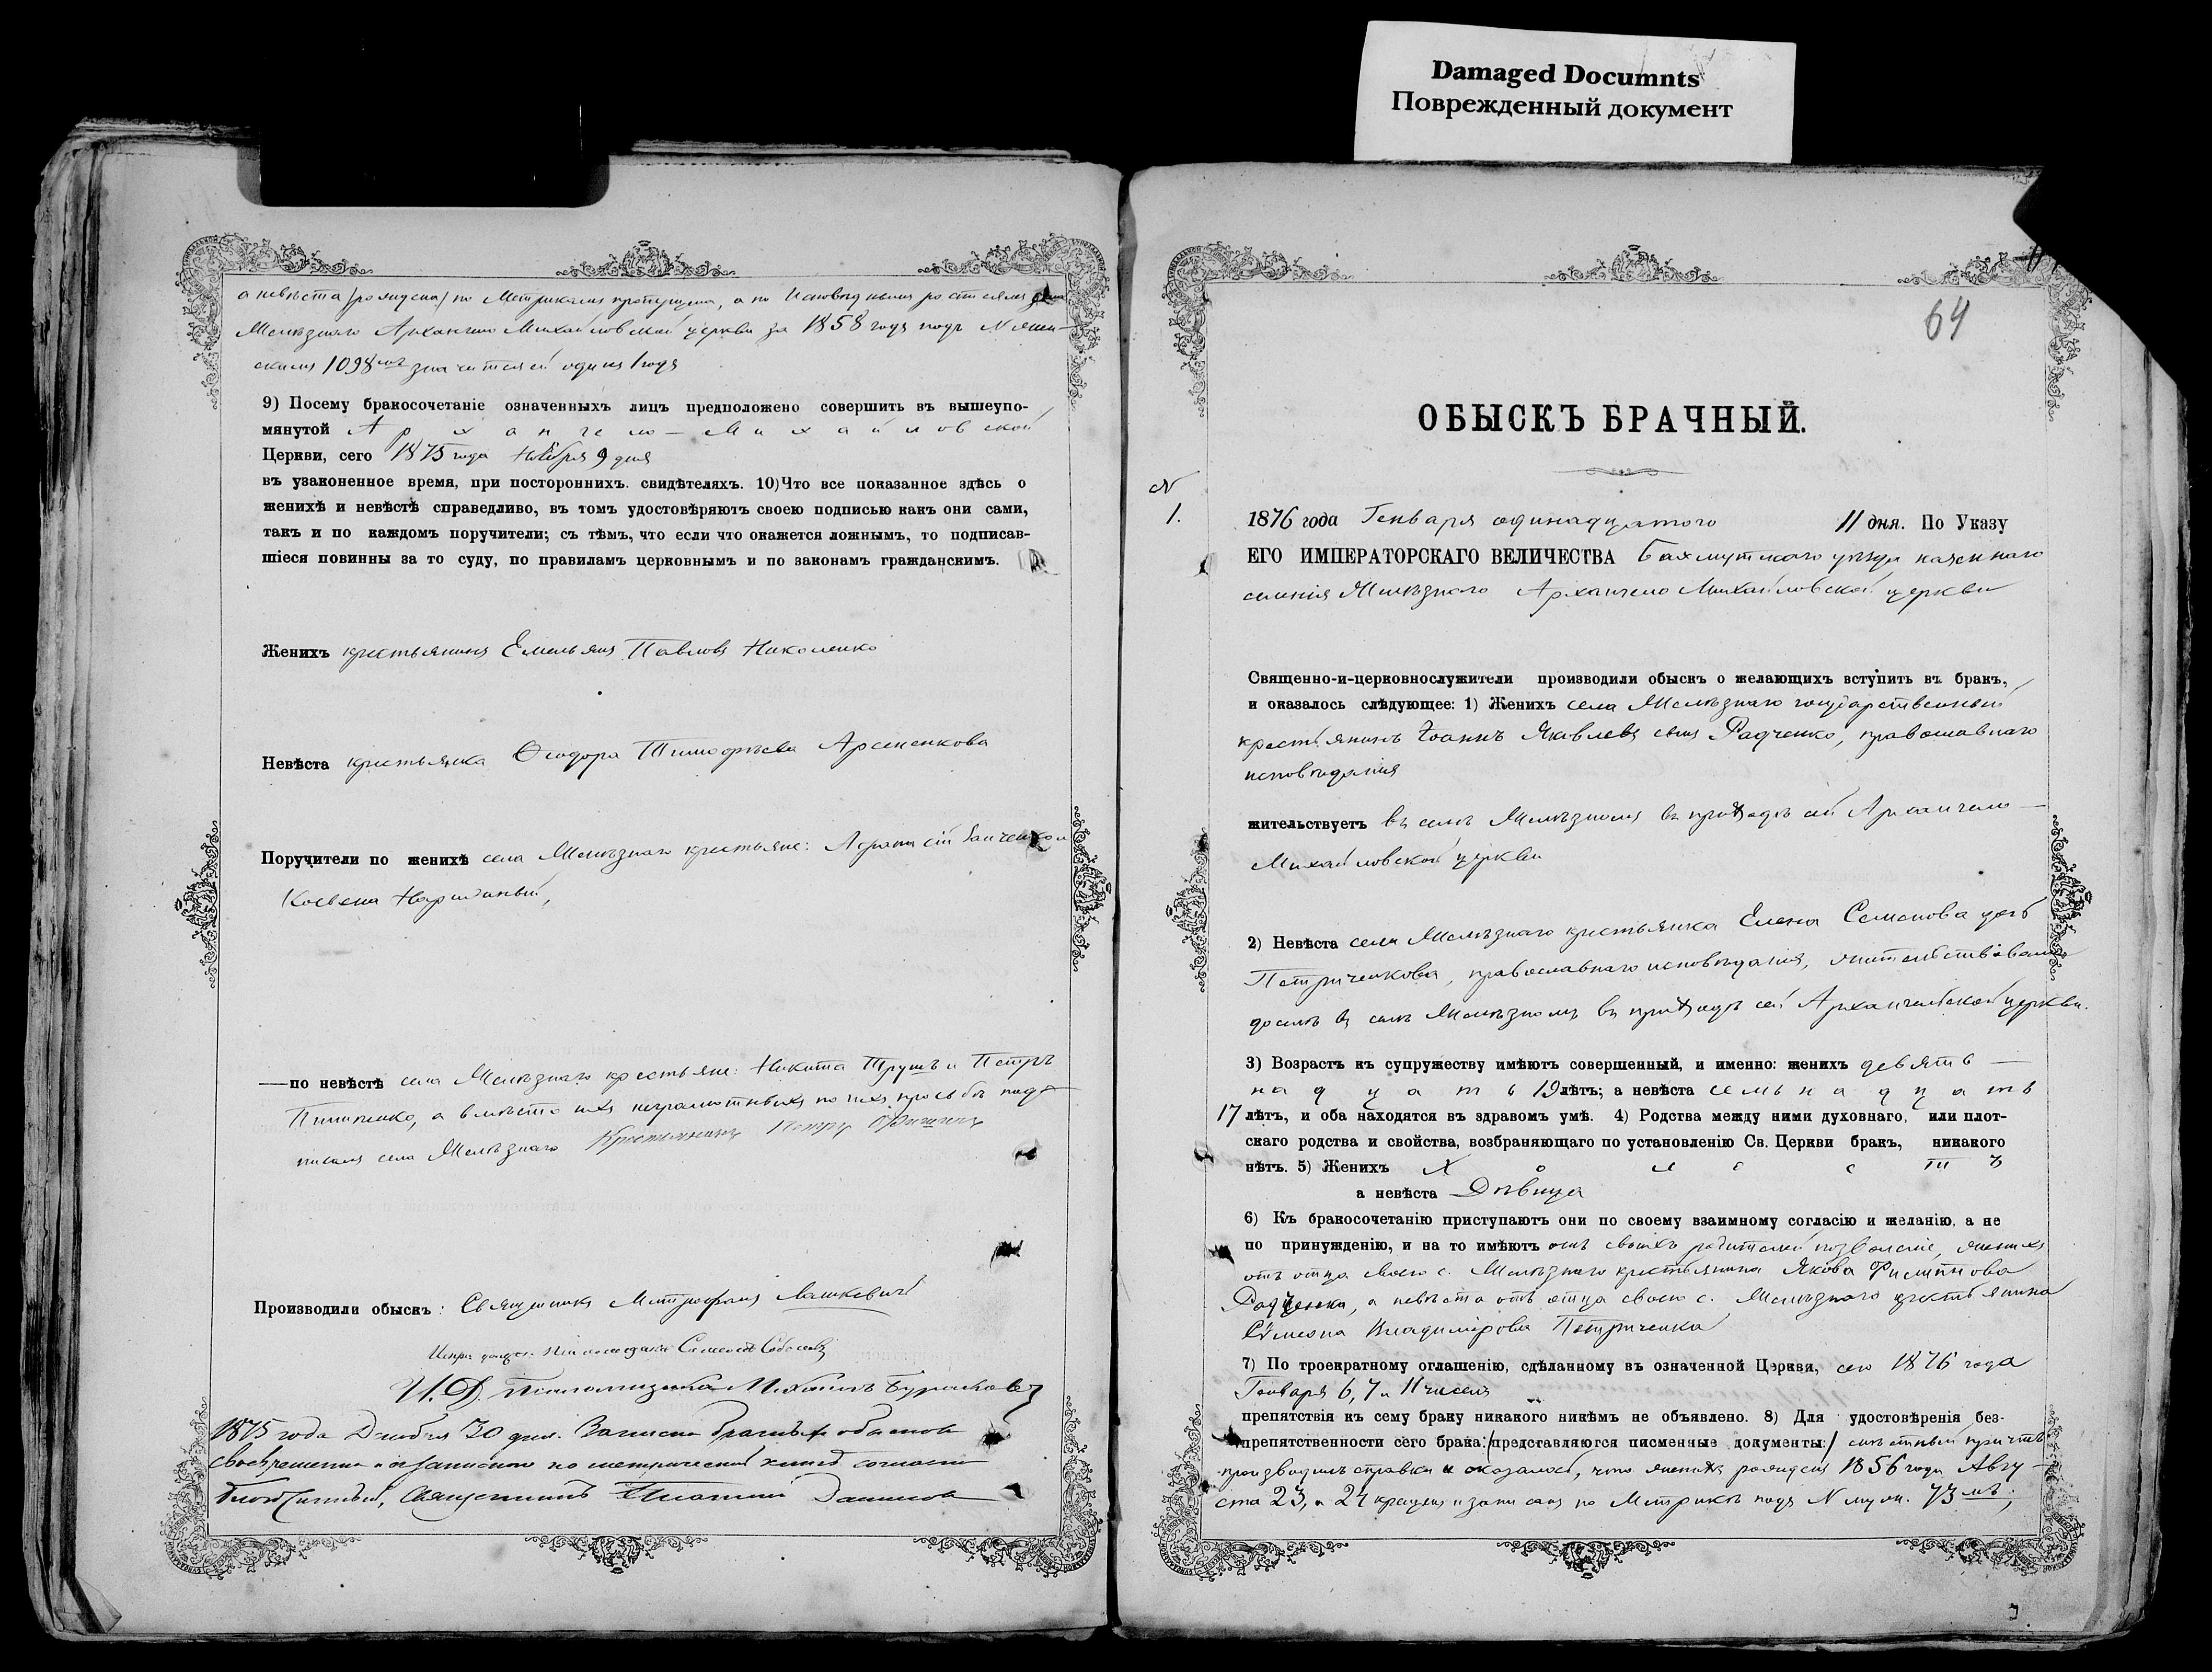 Damaged Documnts
Поврежденный документ
а невѣста /рождена/ по Метрикамъ пропущена, а по Исповѣднымъ росписямъ
Желѣзнаго Архангело Михайловской церкви за 1858 годъ подъ № жен-
скимъ 1098мъ значится ей одинъ 1 годъ
9) Посему бракосочетаніе означенныхъ лицъ предположено совершить въ вышеупо-
мянутой Архангело-Михайловской
Церкви, сего 1875 года Ноября 9 дня
въ узаконенное время, при постороннихъ. свидѣтеляхъ. 10) Что все показанное здѣсь о
женихѣ и невѣстѣ справедливо, въ томъ удостовѣряютъ своею подписью какъ они сами,
такъ и по каждомъ поручители; съ тѣмъ, что если что окажется ложнымъ, то подписав-
шіеся повинны за то суду, по правиламъ церковнымъ и по законамъ гражданскимъ.
Женихъ крестьянинъ Емельянъ Павловъ Николенко
Невѣста крестьянка Ѳеодора Тимофѣева Арсененкова
Поручители по женихѣ села Желѣзнаго крестьяне: Афанасій
—по невѣстѣ села Желѣзнаго крестьяне: Никита Трушъ и Петръ
а вмѣсто ихъ неграмотныхъ по ихъ просьбѣ подъ-
писалъ села Желѣзнаго Крестьянинъ Петръ
Производили обыскъ: Священникъ Митрофанъ Лашкевичъ
И. Д. Псаломщика Михаилъ
1875 года Декабря 30 дня.
Священникъ
64
ОБЫСКЪ БРАЧНЫЙ.
№
1.
1876 года Генваря одинадцатого 11 дня. По Указу
ЕГО ИМПЕРАТОРСКАГО ВЕЛИЧЕСТВА Бахмутскаго уѣзда казеннаго
селенія Желѣзнаго Архангело Михайловской церкви
Священно-и-церковнослужители производили обыскъ о желающихъ вступить въ бракъ,
и оказалось слѣдующее: 1) Женихъ села Желѣзнаго государственный
крестьянинъ Іоаннъ Яковлевъ сынъ Радченко, православнаго
исповѣданія
жительствуетъ въ селѣ Желѣзномъ въ приходѣ сей Архангело—
Михайловской церкви
2) Невѣста села Желѣзнаго крестьянка Елена Семенова дочь
Петриченкова, православнаго исповѣданія, жительствовала
доселѣ въ селѣ Желѣзномъ въ приходѣ сей Архангельской церкви.
3) Возрастъ къ супружеству имѣютъ совершенный, и именно: женихъ девять—
надцать 19 лѣтъ; а невѣста семьнадцать
17 лѣтъ, и оба находятся въ здравомъ умѣ. 4) Родства между ними духовнаго, или плот-
скаго родства и свойства, возбраняющаго по установленію Св. Церкви бракъ, никакого
нѣтъ. 5) Женихъ Холостъ
а невѣста Дѣвица
6) Къ бракосочетанію приступаютъ они по своему взаимному согласію и желанію, а не
по принужденію, и на то имѣютъ отъ своихъ родителей позволеніе, женихъ
отъ отца своего с. Желѣзнаго крестьянина Якова Филипова
Радченка, а невѣста отъ отца своего с. Желѣзнаго крестьянина
Сѵмеона Владимірова Петриченка
7) По троекратному оглашенію, сдѣланному въ означенной Церкви, сего 1876 года
Генваря 6, 7 и 11 чиселъ
препятствія къ сему браку никакого никѣмъ не объявлено. 8) Для удостовѣренія без-
препятственности сего брака: /представляются писменные документы:/ мѣстный причтъ
производилъ справки и оказалось, что женихъ рожденъ 1856 года Авгу-
ста 23, а 24 крещенъ и записанъ по Метрикѣ подъ № муж. 73мъ;